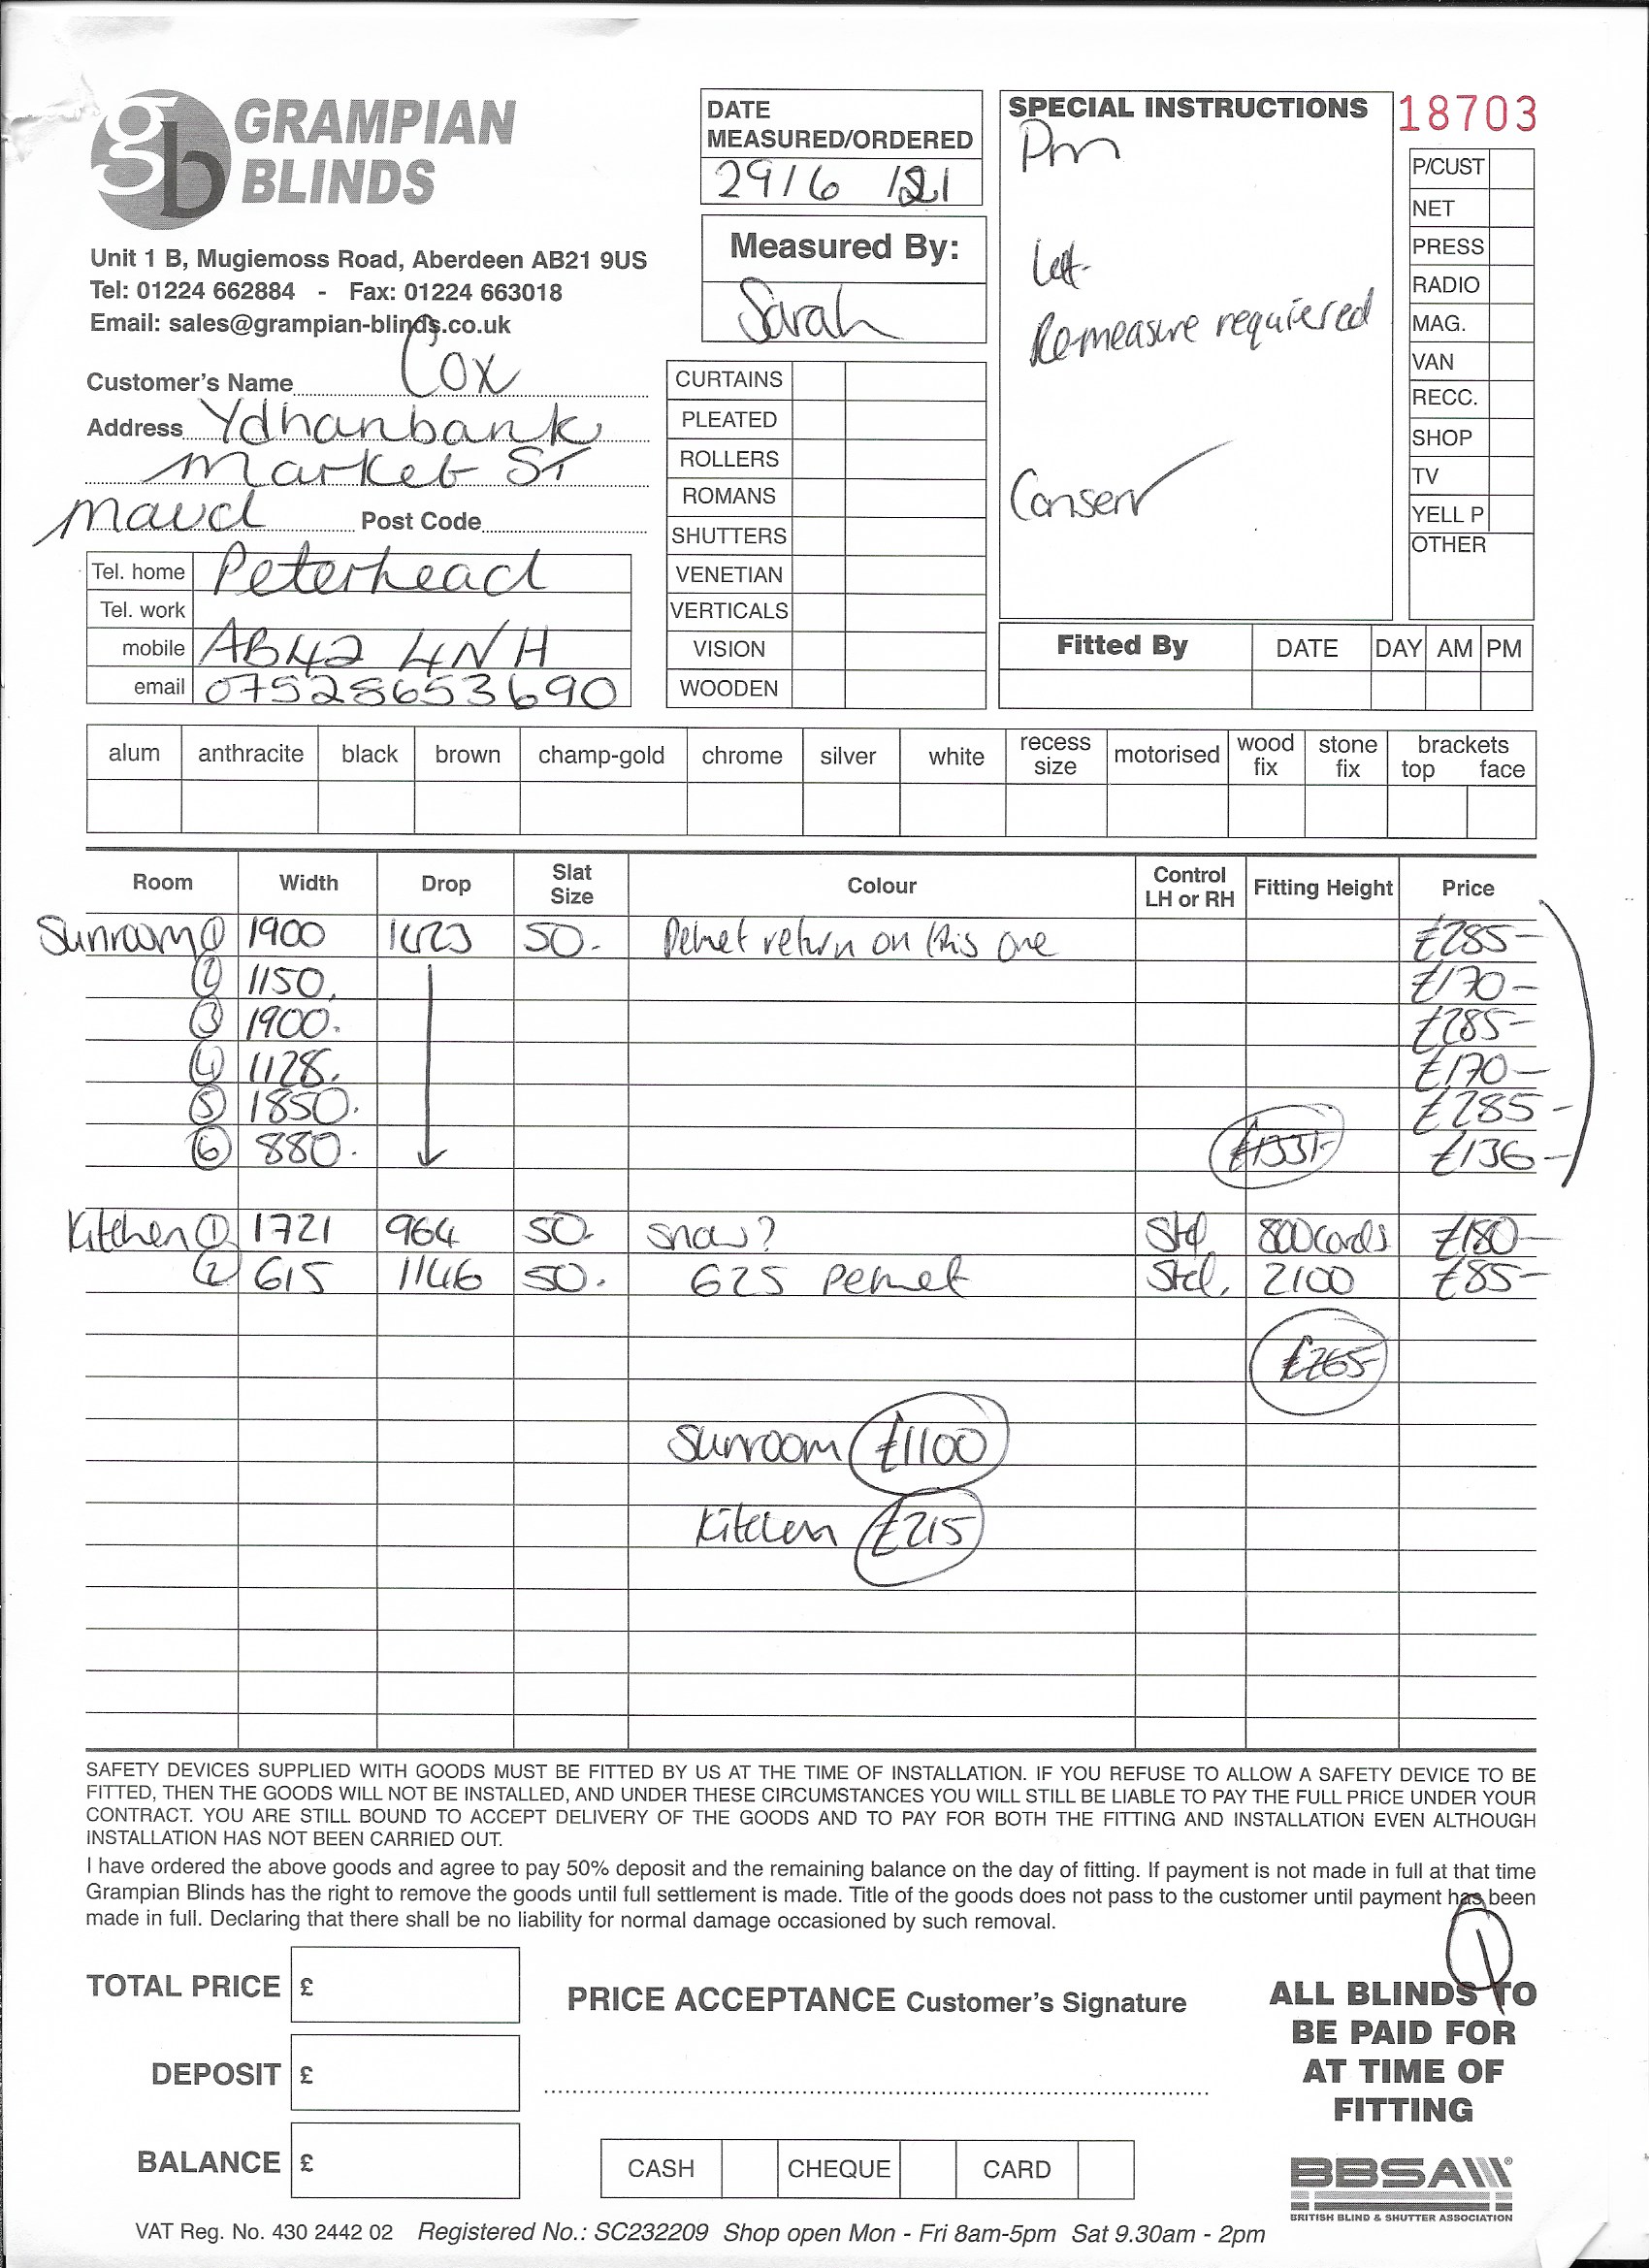 GRAMPIAN
BLINDS
Unit 1 B, Mugiemoss Road, Aberdeen AB21 9US
Tel: 01224 662884 - Fax: 01224 663018
Email: sales@grampian-blinds.co.uk
Customer's Name Cox
Address Ydhanbank
Market St
Maud Post Code
Tel. home Peterhead
Tel. work
mobile AB42 4NH
email 07528653690
DATE
MEASURED/ORDERED
29/6/21
Measured By:
Sarah
CURTAINS
PLEATED
ROLLERS
ROMANS
SHUTTERS
VENETIAN
VERTICALS
VISION
WOODEN
SPECIAL INSTRUCTIONS
Pm
Left
Remeasure requiered
Conserv
18703
P/CUST
NET
PRESS
RADIO
MAG.
VAN
RECC.
SHOP
TV
YELL P
OTHER
Fitted By DATE DAY AM PM
alum anthracite black brown champ-gold chrome silver white recess size motorised wood fix stone fix brackets top face
Room Width Drop Slat Size Colour Control LH or RH Fitting Height Price
Sunroom 1 1900 50. Pelmet return on this one £285-
2 1150. £170-
3 1900. £285-
4 1128. £170-
5 1850. £285-
6 880. £1331- £136-
Kitchen 1 1721 964 50. snow? Std 800 cords £180-
2 615 1146 50. 625 pelmet Std. 2100 £85-
£265-
Sunroom £1100
Kitchen £215
SAFETY DEVICES SUPPLIED WITH GOODS MUST BE FITTED BY US AT THE TIME OF INSTALLATION. IF YOU REFUSE TO ALLOW A SAFETY DEVICE TO BE
FITTED, THEN THE GOODS WILL NOT BE INSTALLED, AND UNDER THESE CIRCUMSTANCES YOU WILL STILL BE LIABLE TO PAY THE FULL PRICE UNDER YOUR
CONTRACT. YOU ARE STILL BOUND TO ACCEPT DELIVERY OF THE GOODS AND TO PAY FOR BOTH THE FITTING AND INSTALLATION EVEN ALTHOUGH
INSTALLATION HAS NOT BEEN CARRIED OUT.
I have ordered the above goods and agree to pay 50% deposit and the remaining balance on the day of fitting. If payment is not made in full at that time
Grampian Blinds has the right to remove the goods until full settlement is made. Title of the goods does not pass to the customer until payment has been
made in full. Declaring that there shall be no liability for normal damage occasioned by such removal.
TOTAL PRICE £
DEPOSIT £
BALANCE £
PRICE ACCEPTANCE Customer's Signature
CASH CHEQUE CARD
ALL BLINDS TO
BE PAID FOR
AT TIME OF
FITTING
BBSA
BRITISH BLIND & SHUTTER ASSOCIATION
VAT Reg. No. 430 2442 02 Registered No.: SC232209 Shop open Mon - Fri 8am-5pm Sat 9.30am - 2pm